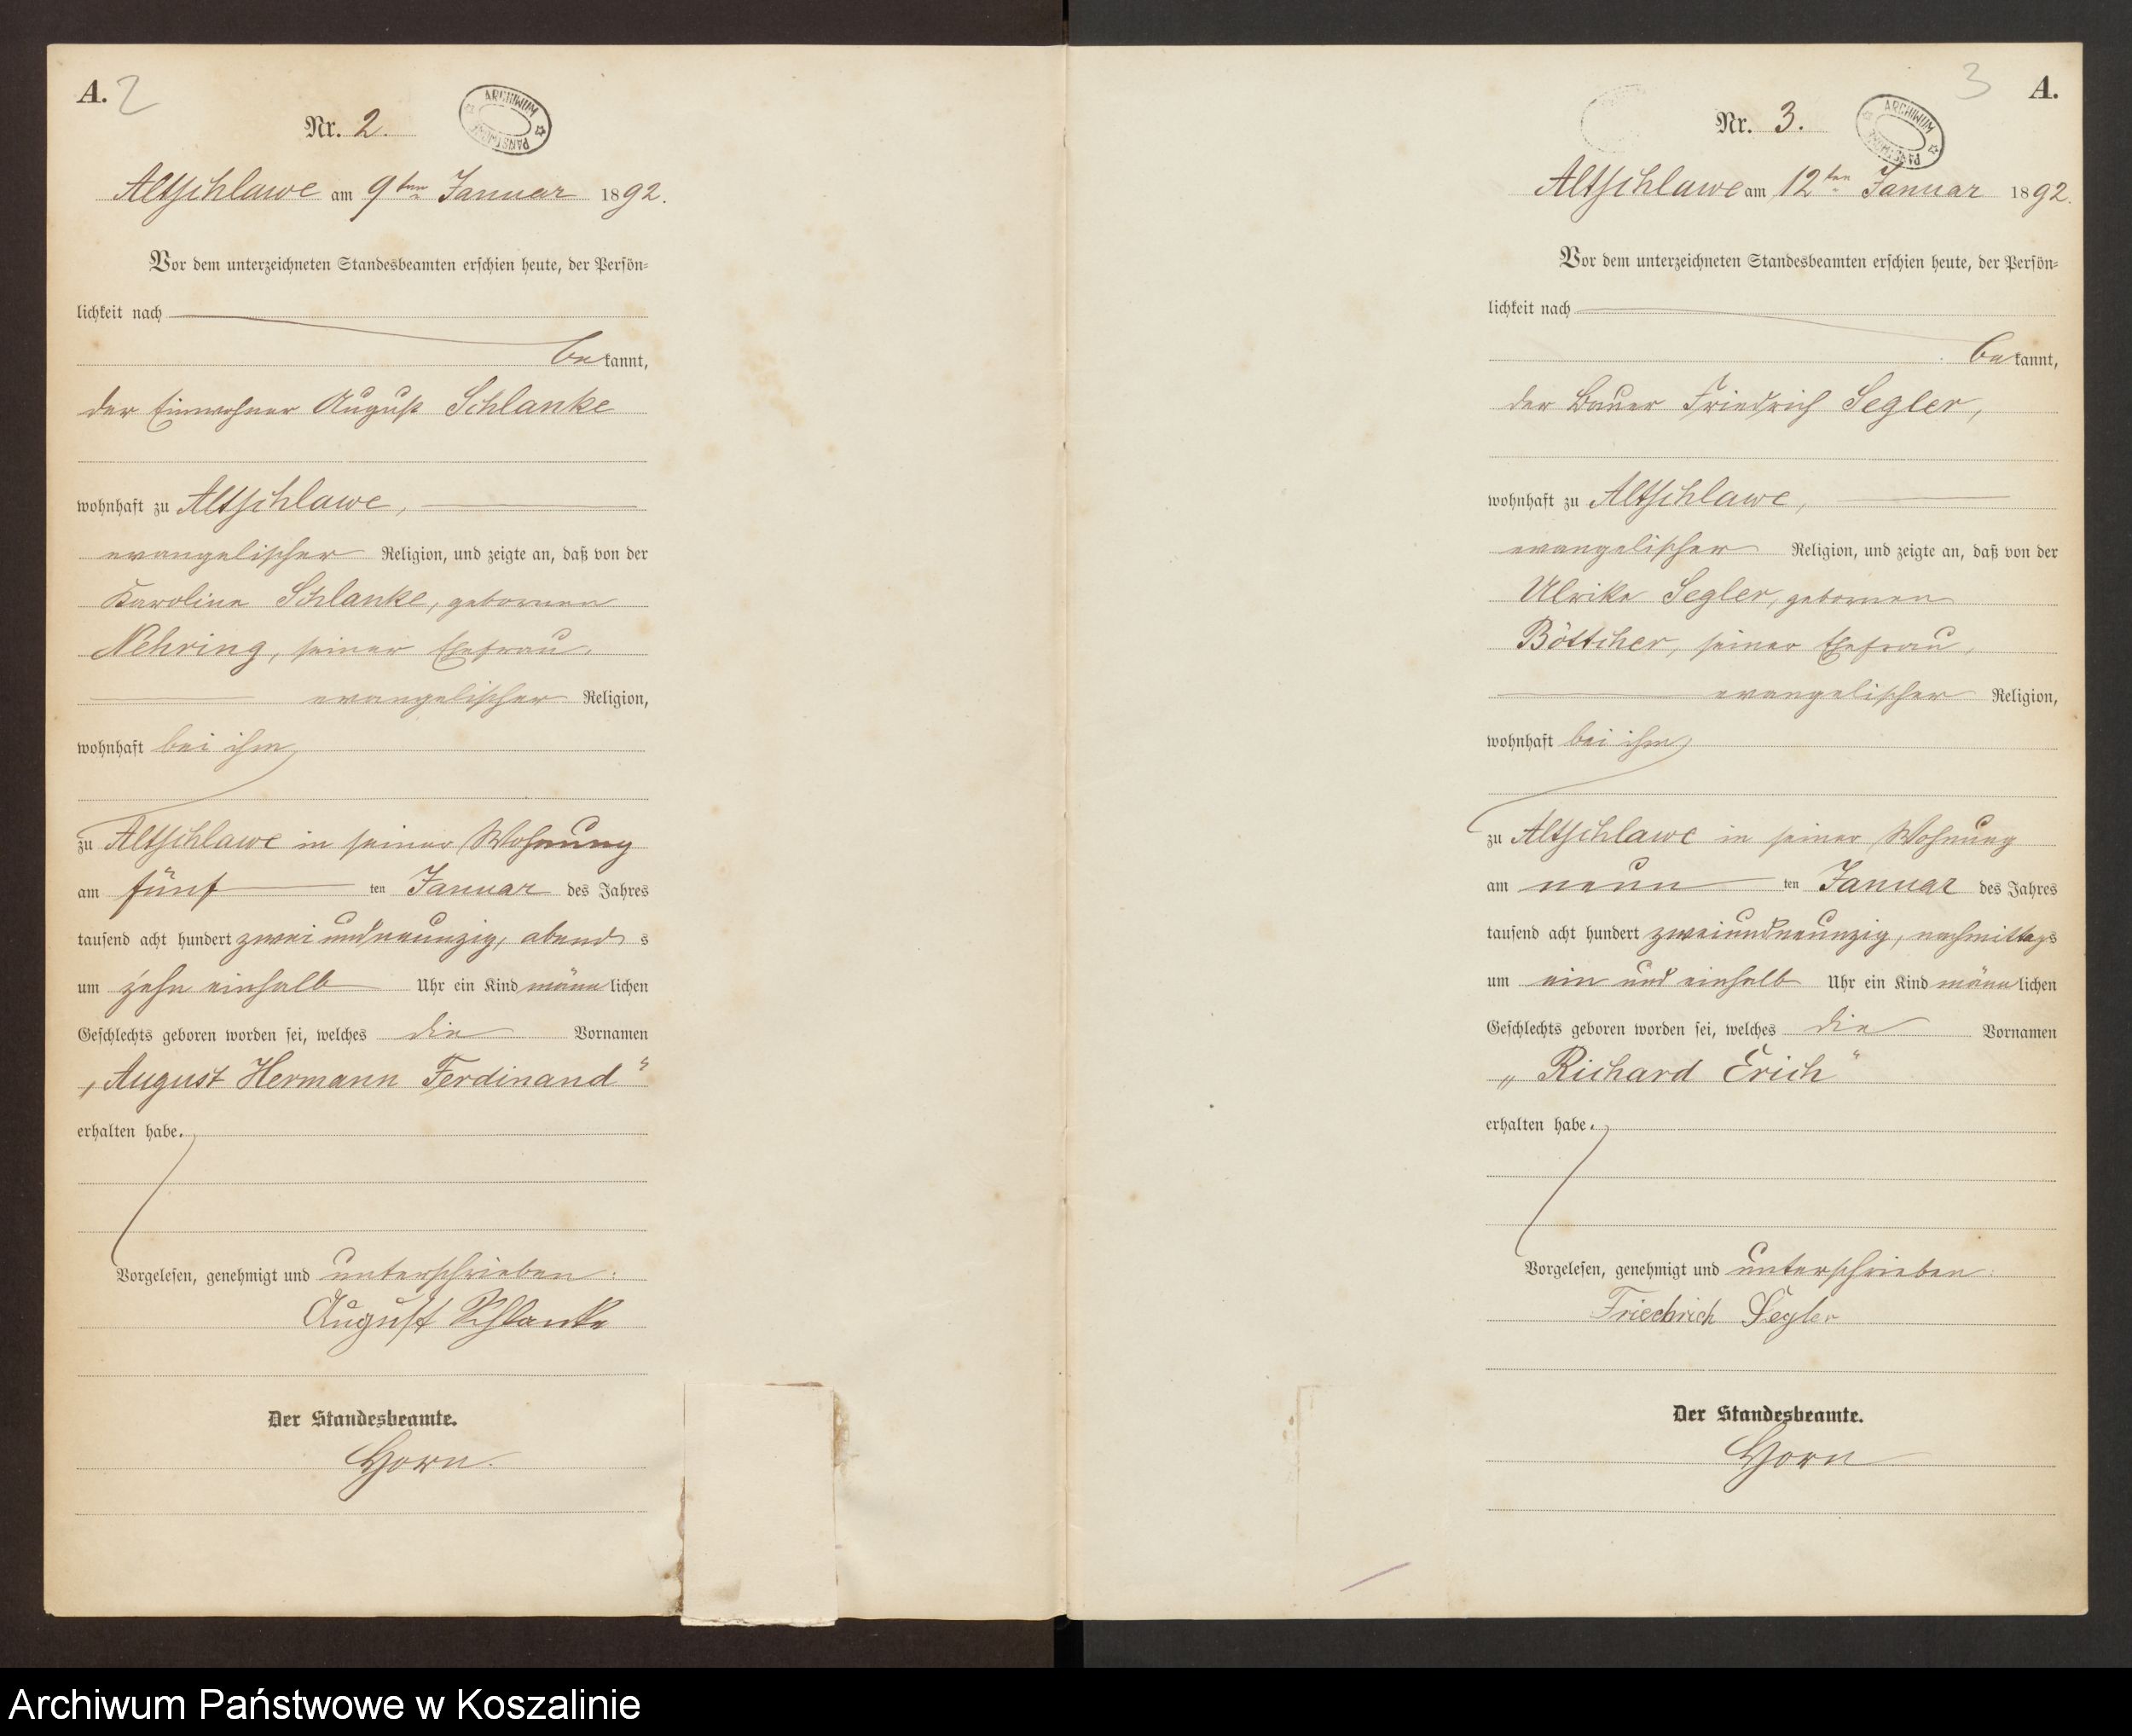 A. 2
Nr. 2.
ARCHIWUM PAŃSTWOWE
Altschlawe am 9ten Januar 1892.
Vor dem unterzeichneten Standesbeamten erschien heute, der Persön-
lichkeit nach
bekannt,
der Einwohner August Schlanke
wohnhaft zu Altschlawe,
evangelischer Religion, und zeigte an, daß von der
Karoline Schlanke, geborenen
Nehring, seiner Ehefrau,
evangelischer Religion,
wohnhaft bei ihm
zu Altschlawe in seiner Wohnung
am fünf ten Januar des Jahres
tausend acht hundert zwei und neunzig, abends
um zehn einhalb Uhr ein Kind männlichen
Geschlechts geboren worden sei, welches die Vornamen
„August Hermann Ferdinand“
erhalten habe.
Vorgelesen, genehmigt und unterschrieben.
August Schlanke
Der Standesbeamte.
Horn.
3 A.
Nr. 3.
ARCHIWUM PAŃSTWOWE
Altschlawe am 12ten Januar 1892.
Vor dem unterzeichneten Standesbeamten erschien heute, der Persön-
lichkeit nach
bekannt,
der Bauer Friedrich Segler,
wohnhaft zu Altschlawe,
evangelischer Religion, und zeigte an, daß von der
Ulrike Segler, geborenen
Böttcher, seiner Ehefrau,
evangelischer Religion,
wohnhaft bei ihm
zu Altschlawe in seiner Wohnung
am neun ten Januar des Jahres
tausend acht hundert zweiundneunzig, nachmittags
um ein und einhalb Uhr ein Kind männlichen
Geschlechts geboren worden sei, welches die Vornamen
„Richard Erich“
erhalten habe.
Vorgelesen, genehmigt und unterschrieben.
Friedrich Segler
Der Standesbeamte.
Horn
Archiwum Państwowe w Koszalinie